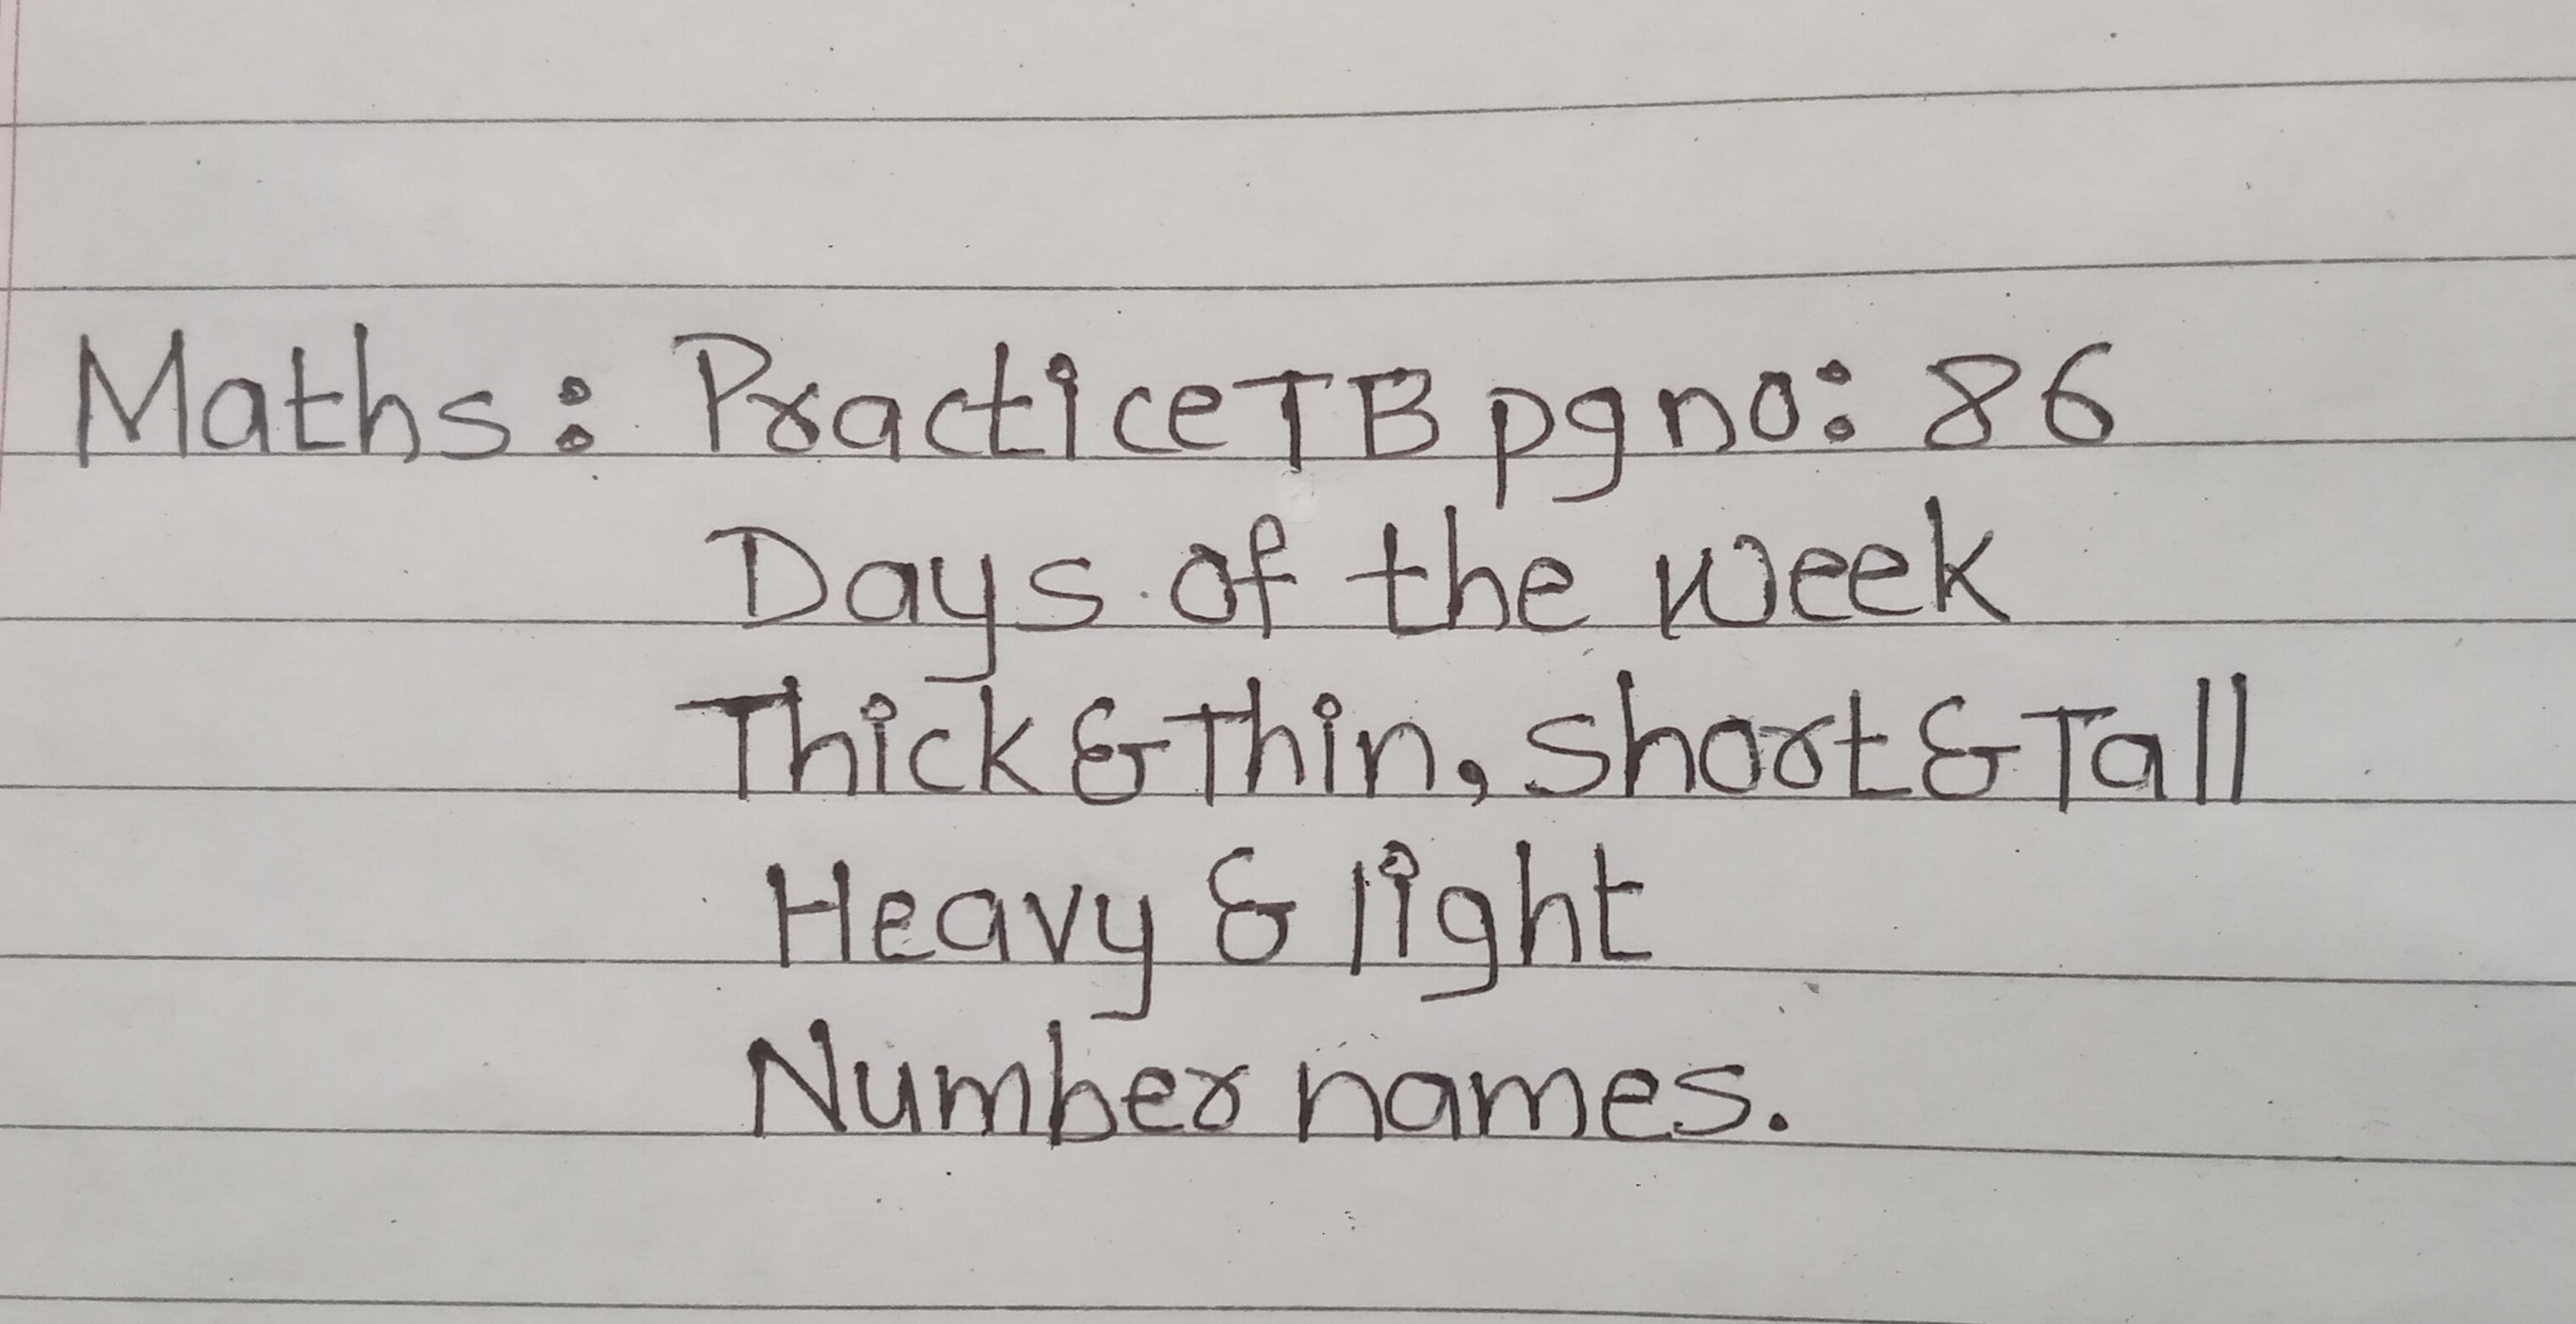 Maths: Practice TB pg no: 86
Days of the week
Thick & Thin, Short & Tall
Heavy & light
Number names.